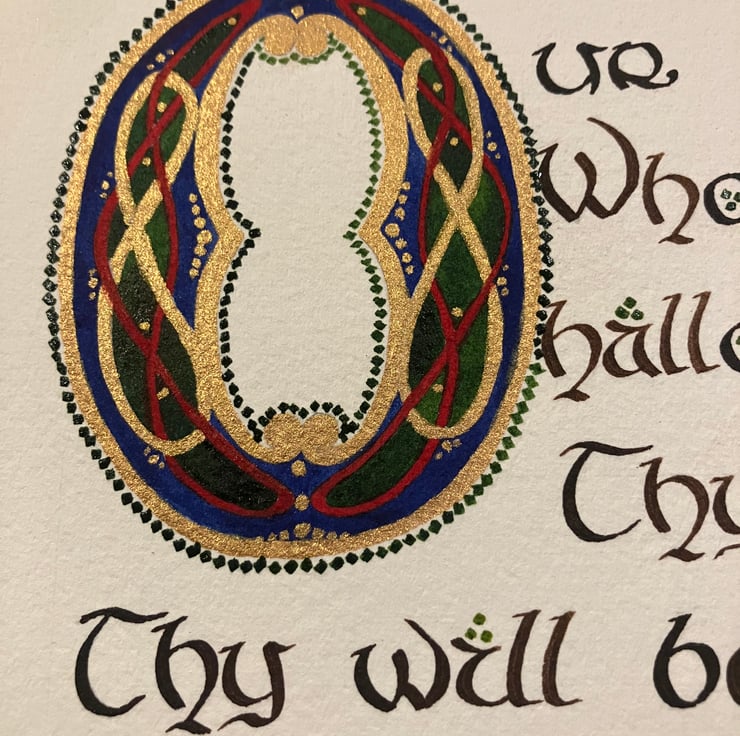 Our
Who
hallo
Thy
Thy will be